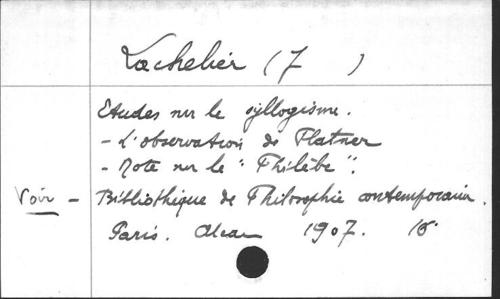 Lachelier (J )
Etudes sur le syllogisme.
- L'observation de Platner
- Note sur le "Philèbe".
Voir - Bibliothèque de Philosophie contemporain.
Paris. Alcan 1907. 16°